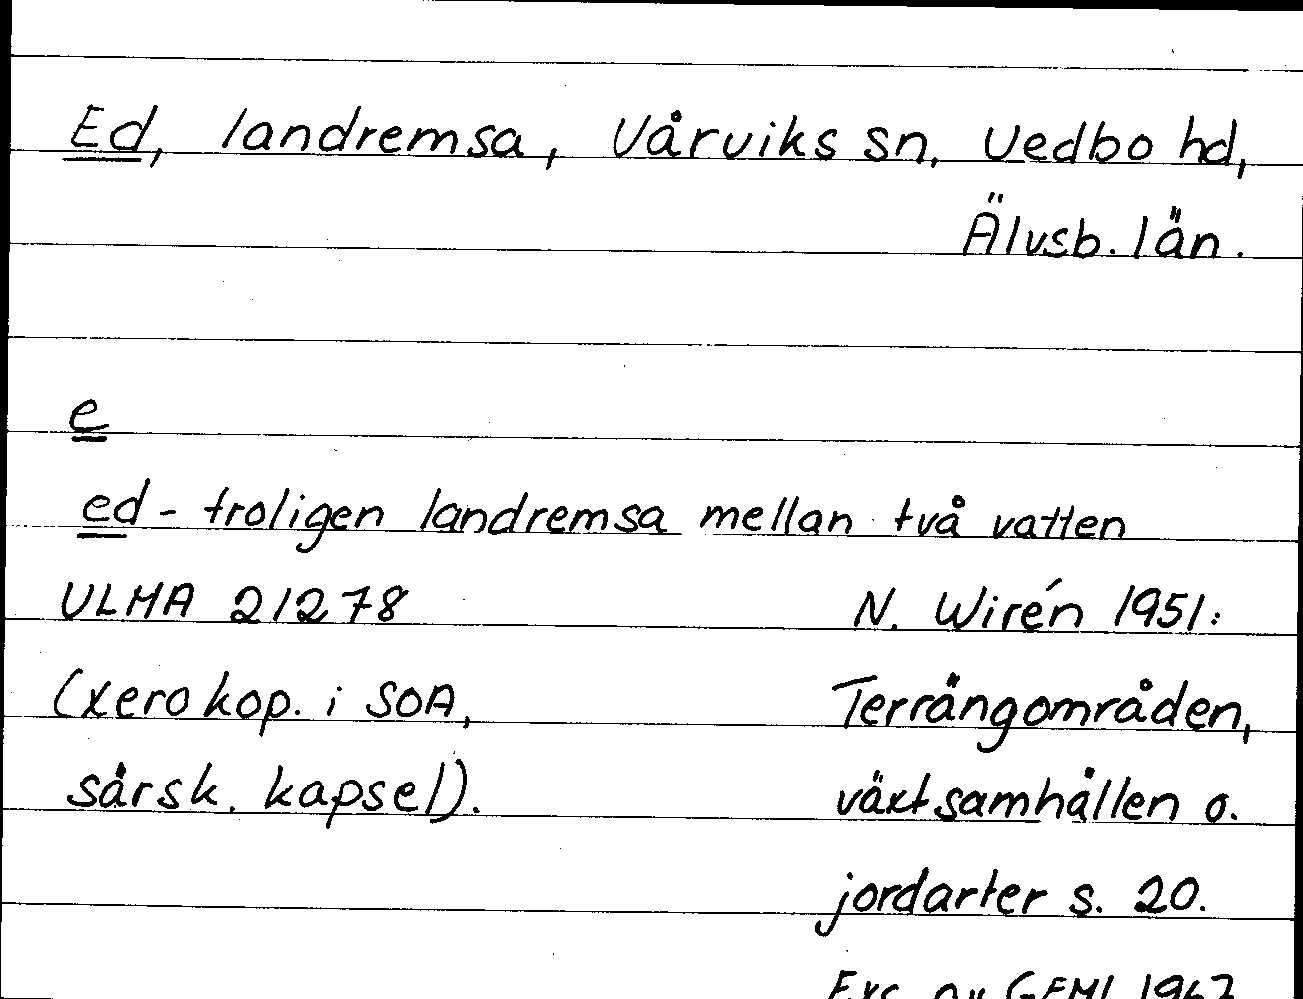 Ed, landremsa, Vårviks sn, Vedbo hd,
Älvsb. län.
e
ed - troligen landremsa mellan två vatten
ULMA 21278 N. Wirén 1951:
(xerokop. i SOA, Terrängområden,
särsk. kapsel). växtsamhällen o.
jordarter s. 20.
Exc. av